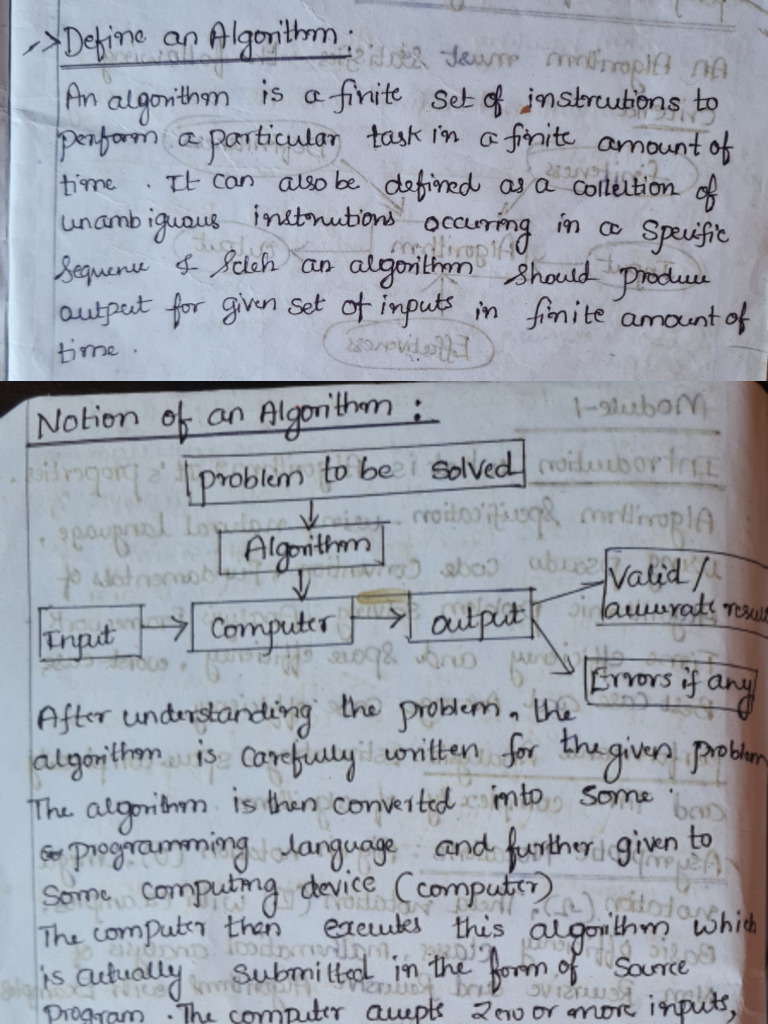 Define an Algorithm :
An algorithm is a finite set of instructions to
perform a particular task in a finite amount of
time . It can also be defined as a collection of
unambiguous instructions occuring in a specific
sequence & such an algorithm should produce
output for given set of inputs in finite amount of
time .
Notion of an Algorithm :
problem to be solved
Algorithm
Input
Computer
output
Valid /
accurate result
Errors if any
After understanding the problem, the
algorithm is carefully written for the given problem
The algorithm is then converted into some
programming language and further given to
some computing device (computer)
The computer then executes this algorithm which
is actually submitted in the form of source
program . The computer accepts zero or more inputs,